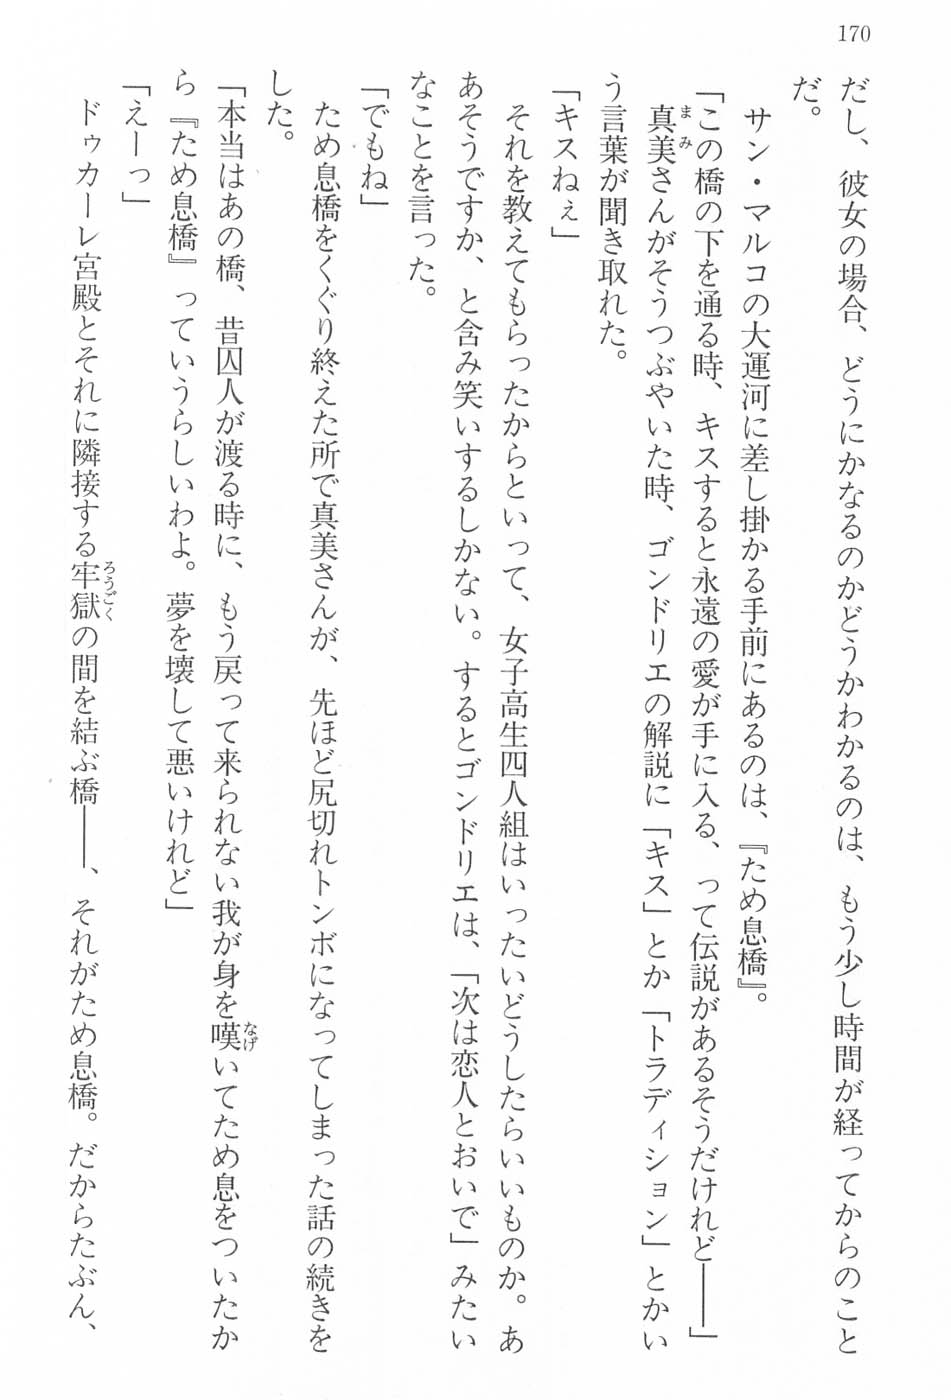 170
だし、彼女の場合、どうにかなるのかどうかわかるのは、もう少し時間が経ってからのこと
だ。
　サン・マルコの大運河に差し掛かる手前にあるのは、『ため息橋』。
「この橋の下を通る時、キスすると永遠の愛が手に入る、って伝説があるそうだけれど――」
　真美さんがそうつぶやいた時、ゴンドリエの解説に「キス」とか「トラディション」とかい
う言葉が聞き取れた。
「キスねぇ」
　それを教えてもらったからといって、女子高生四人組はいったいどうしたらいいものか。あ
あそうですか、と含み笑いするしかない。するとゴンドリエは、「次は恋人とおいで」みたい
なことを言った。
「でもね」
　ため息橋をくぐり終えた所で真美さんが、先ほど尻切れトンボになってしまった話の続きを
した。
「本当はあの橋、昔囚人が渡る時に、もう戻って来られない我が身を嘆いてため息をついたか
ら『ため息橋』っていうらしいわよ。夢を壊して悪いけれど」
「えーっ」
　ドゥカーレ宮殿とそれに隣接する牢獄の間を結ぶ橋――、それがため息橋。だからたぶん、